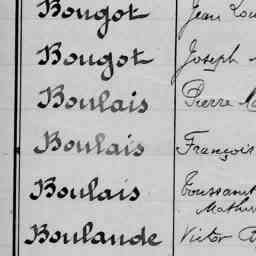 Bougot Jean Lou
Bougot Joseph
Boulais Pierre
Boulais François
Boulais Toussaint
Mathu
Boulande Victor